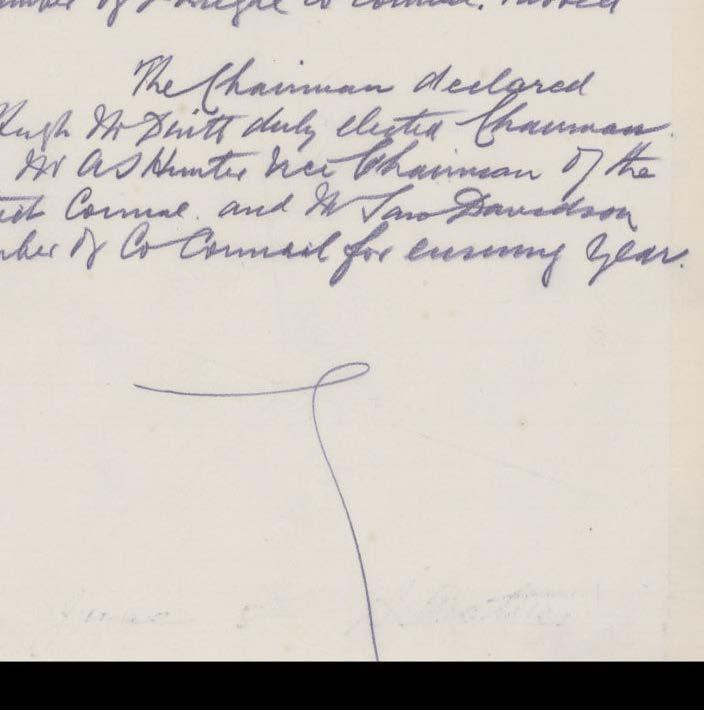 The Chairman declared
Hugh McDevitt duly elected Chairman.
Mr A S Hunter Vice Chairman of the
Council. and Mr Davidson
of Co Council for ensuing Year.